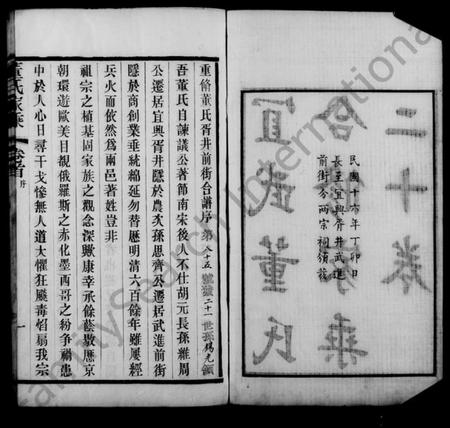 二十卷
合修家乘
宜武董氏
民國十六年丁卯日
長至宜興胥井武進
前街分兩宗祠領蕆
重脩董氏胥井前街合譜序
吾董氏自諫議公著節南宋後人不仕胡元長孫維周
公遷居宜興胥井隱於農次孫思齊公遷居武進前街
隱於商創業垂統綿延勿替歷明清六百餘年雖屢經
兵火而依然為兩邑著姓豈非
祖宗之植基固家族之觀念深歟康幸承餘蔭數歷京
朝環遊歐美目覩俄羅斯之赤化墨西哥之紛爭禍患
中於人心日尋干戈慘無人道大懼狂飈毒燄扇我宗
董氏家乘
卷首
序
一
FamilySearch International